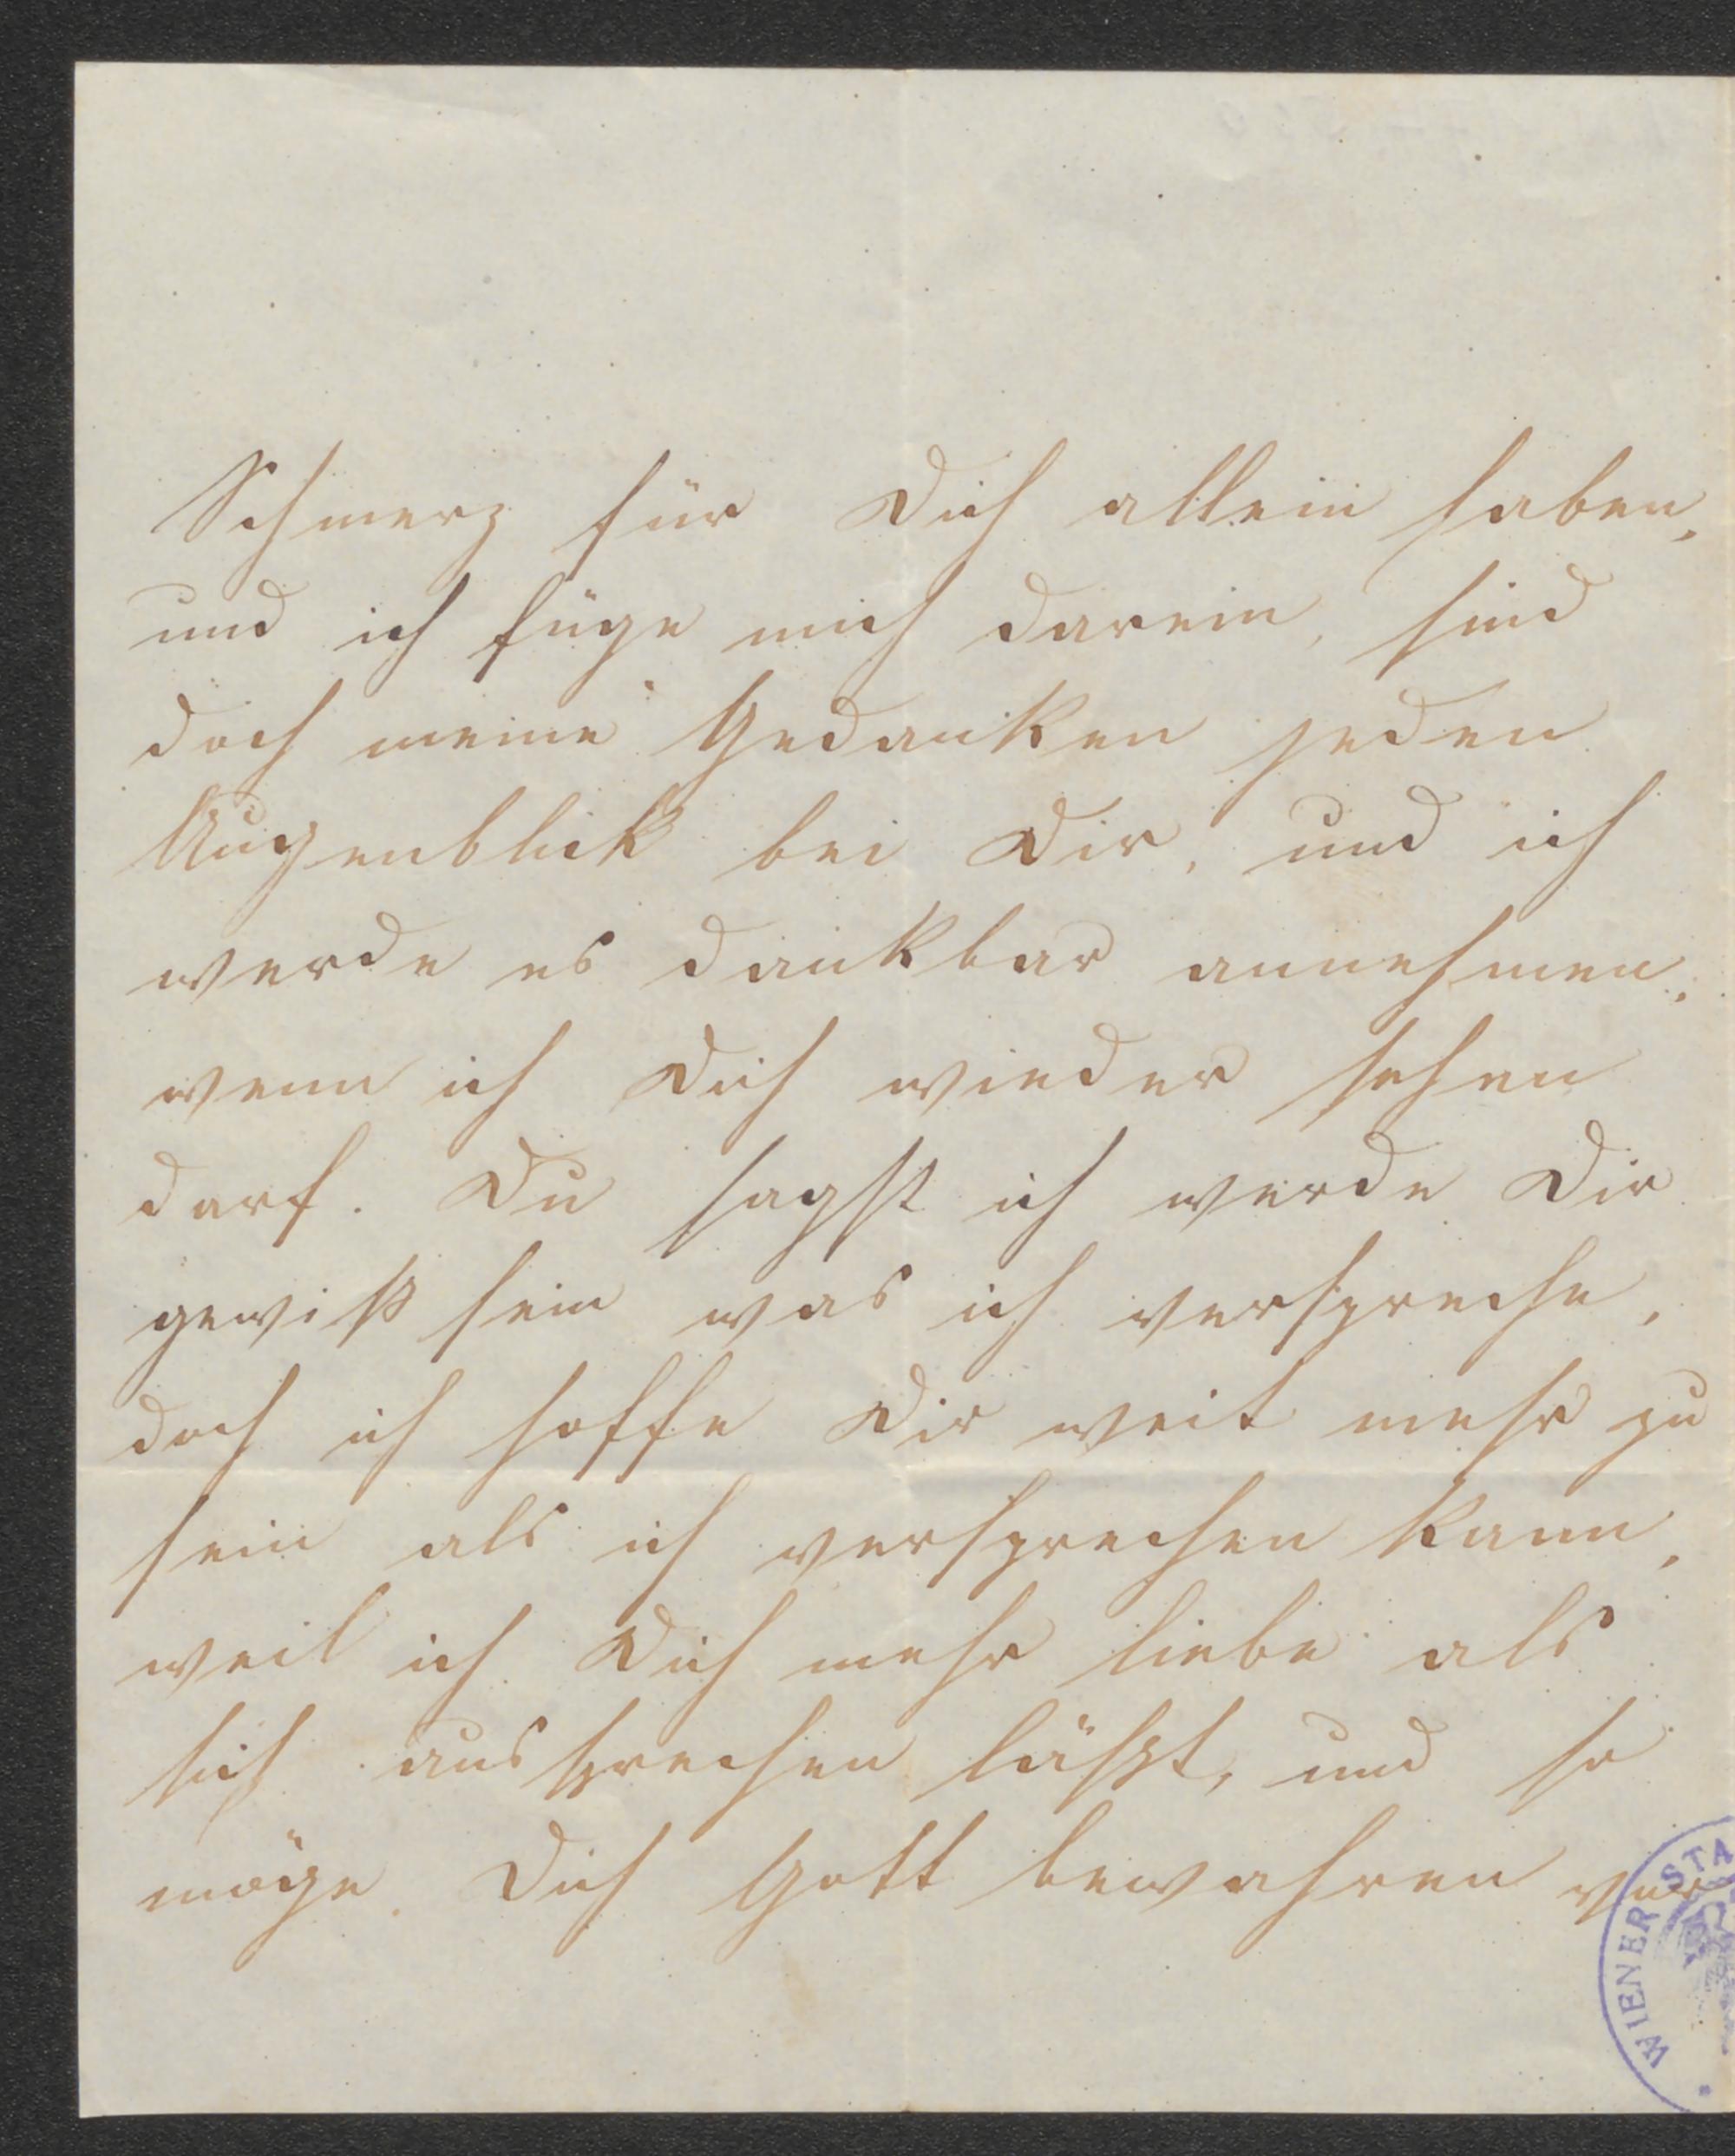 Schmerz für Dich allein haben,
und ich füge mich darein, sind
doch meine Gedanken jeden
Augenblick bei Dir, und ich
werde es dankbar annehmen,
wenn ich Dich wieder sehen
darf. Du sagst ich werde Dir
gewiß sein was ich verspreche,
doch ich hoffe Dir weit mehr zu
sein als ich versprechen kann,
weil ich Dich mehr liebe als
sich aussprechen läßt, und so
möge Dich Gott bewahren vor
WIENER STA